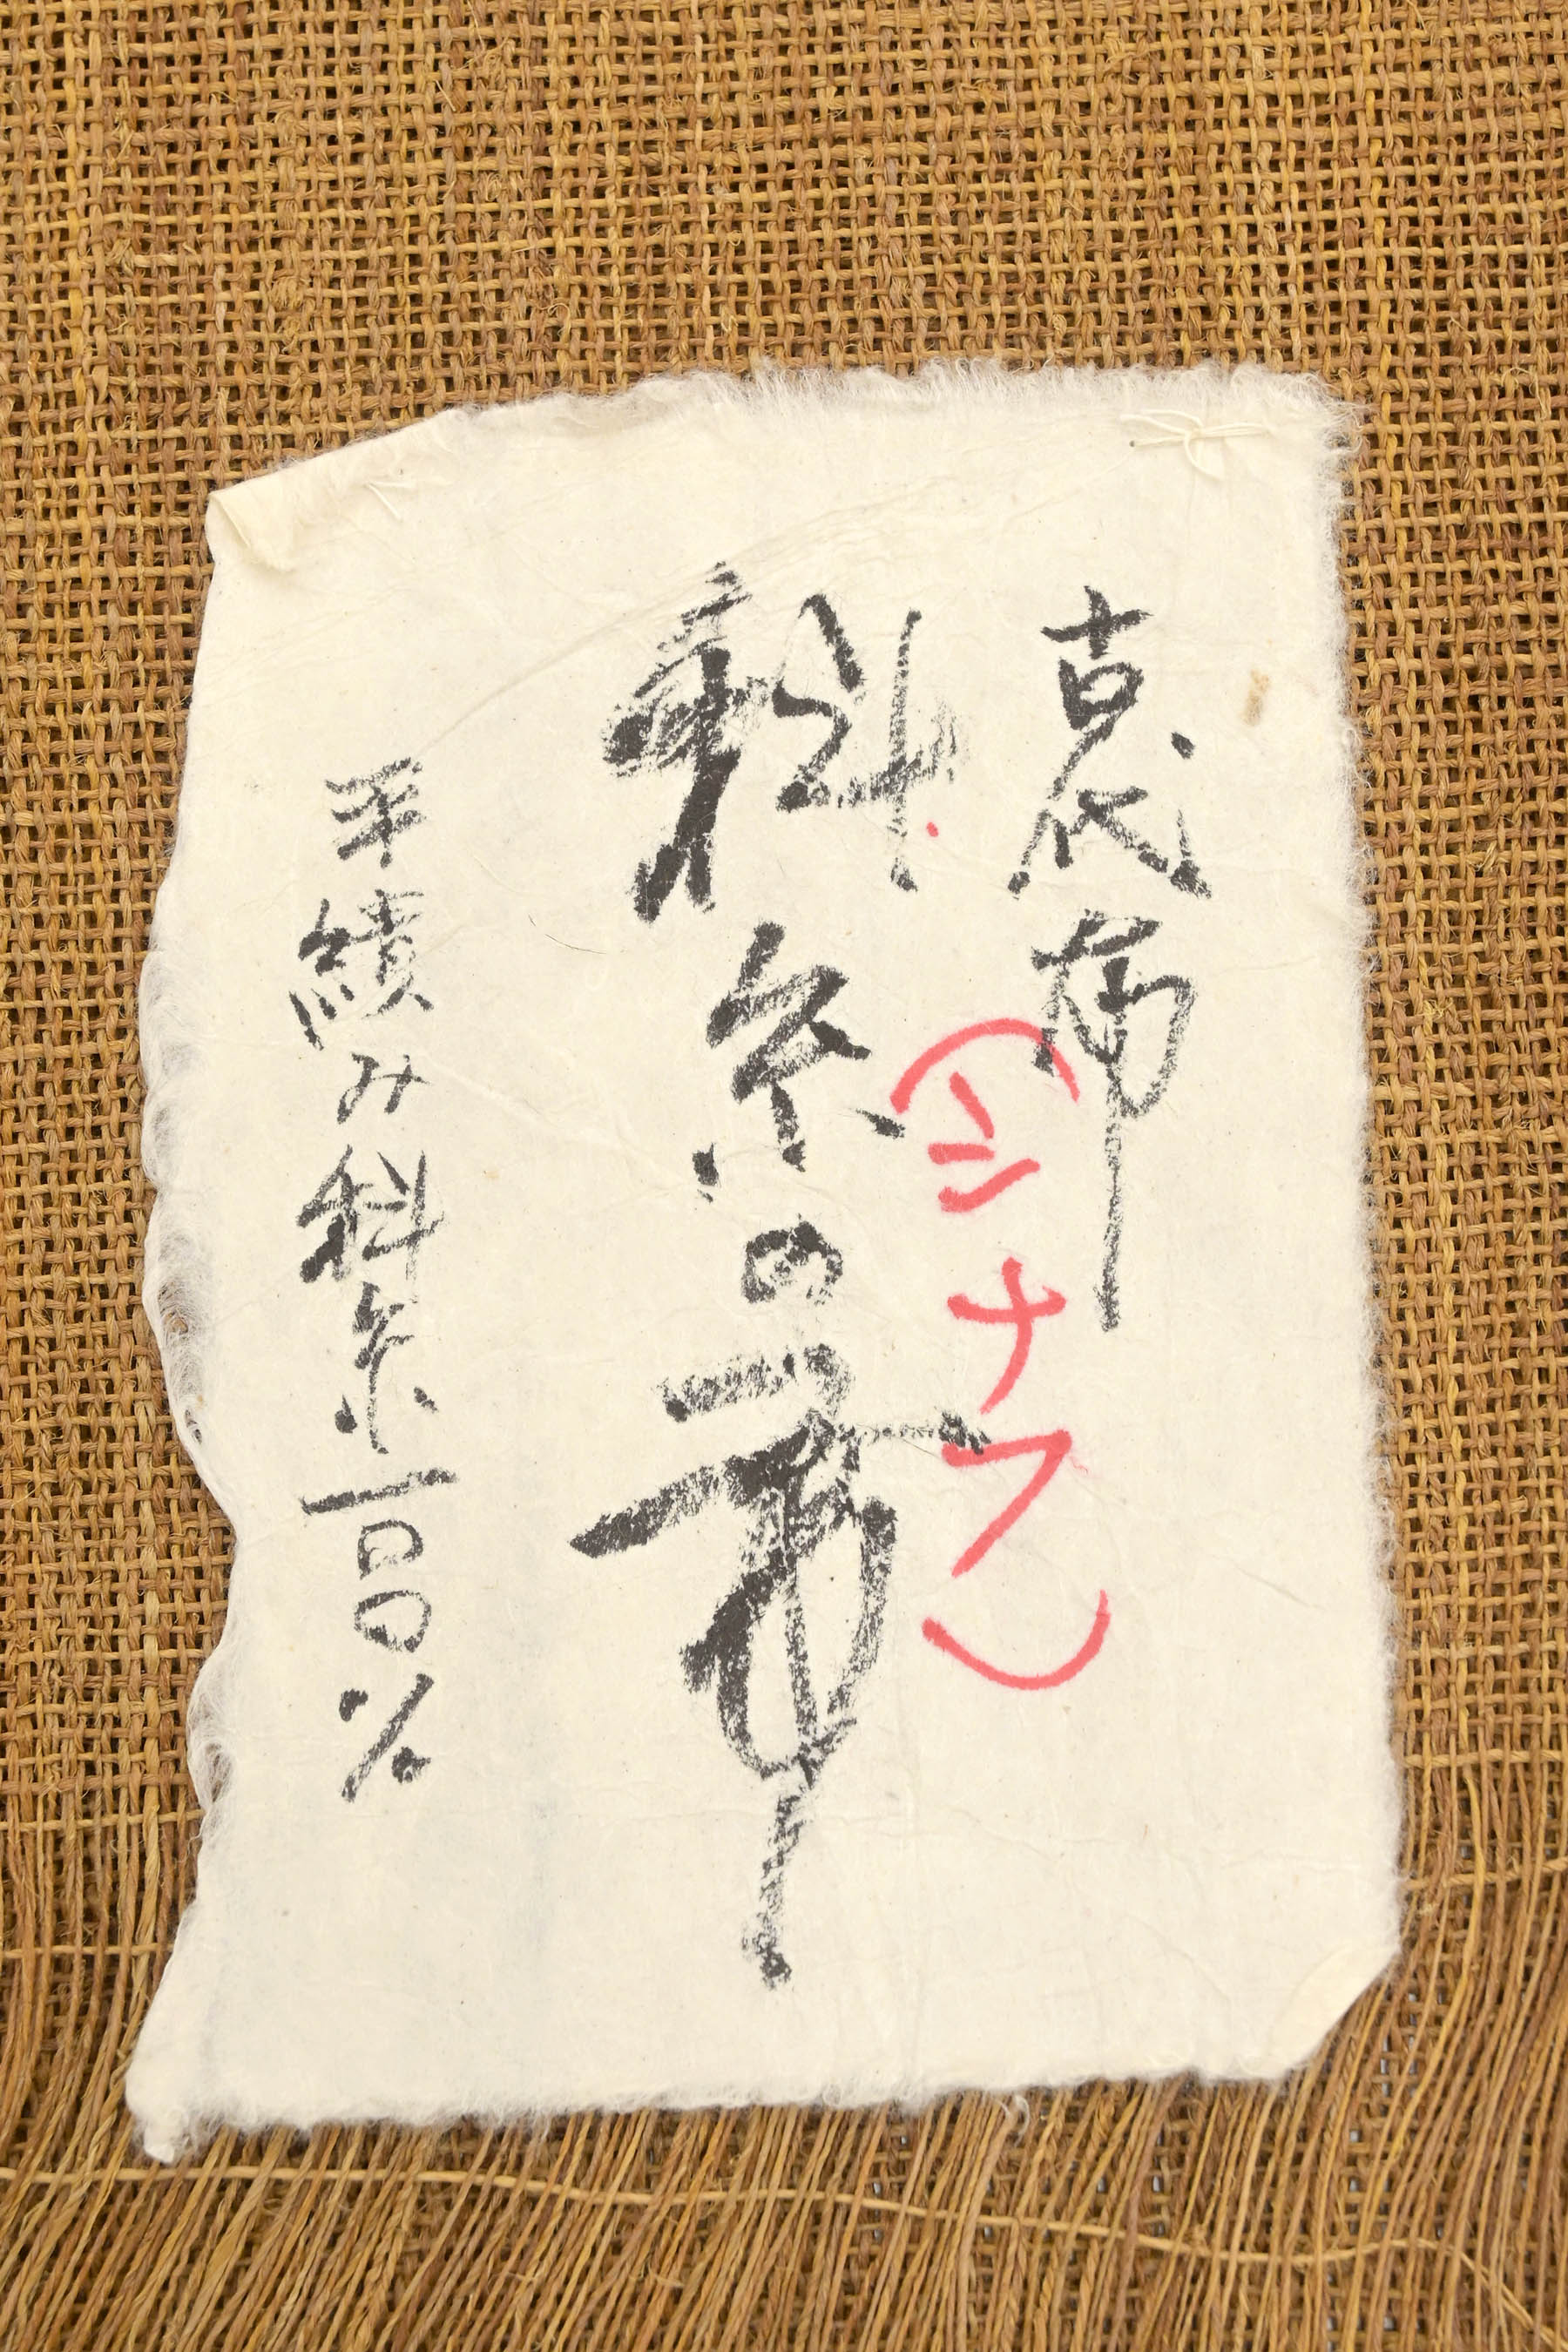 古代布
(シナフ)
科糸の布
手績み科糸一〇〇%